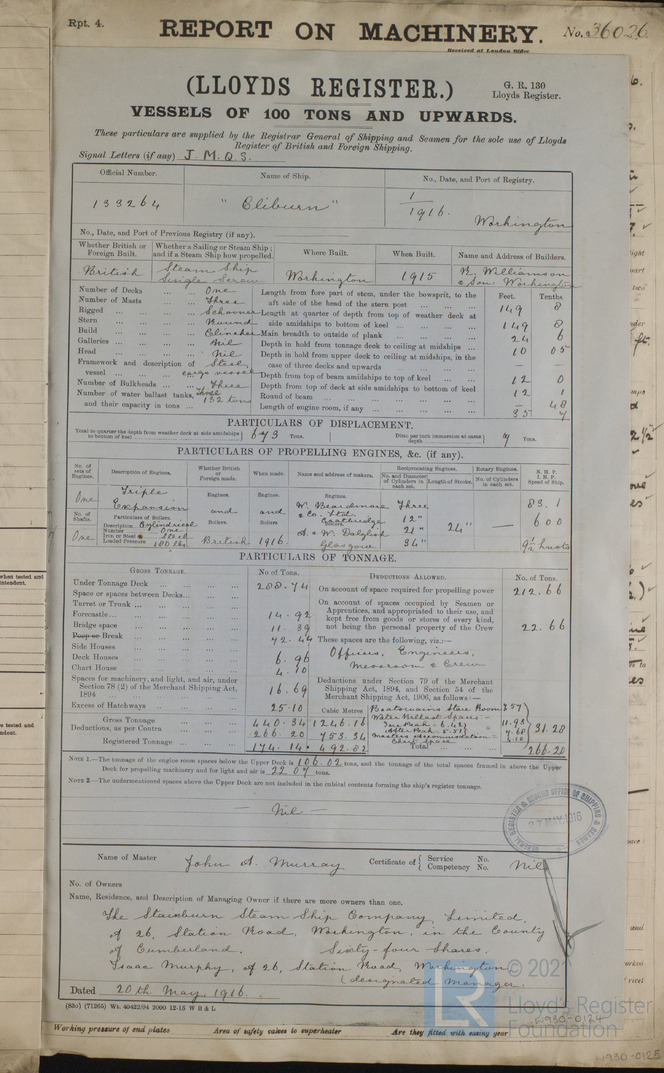 Rpt. 4.
REPORT ON MACHINERY.
No. 36026
Received at London Office
(LLOYDS REGISTER.)
G. R. 130
Lloyds Register.
VESSELS OF 100 TONS AND UPWARDS.
These particulars are supplied by the Registrar General of Shipping and Seamen for the sole use of Lloyds
Register of British and Foreign Shipping.
Signal Letters (if any) J. M. Q. S.
Official Number.
Name of Ship.
No., Date, and Port of Registry.
133264
"Eliburn"
1/1916. Workington
No., Date, and Port of Previous Registry (if any).
Whether British or Foreign Built.
Whether a Sailing or Steam Ship; and if a Steam Ship how propelled.
Where Built.
When Built.
Name and Address of Builders.
British
Steam Ship Single Screw
Workington
1915
R. Williamson & Son Workington
Number of Decks One
Number of Masts Three
Rigged Schooner
Stern Round
Build Clincher
Galleries Nil
Head Nil
Framework and description of vessel Steel, cargo vessel
Number of Bulkheads Three
Number of water ballast tanks, and their capacity in tons Three 132 tons
Feet. Tenths
Length from fore part of stem, under the bowsprit, to the aft side of the head of the stern post 149 8
Length at quarter of depth from top of weather deck at side amidships to bottom of keel 149 8
Main breadth to outside of plank 24 6
Depth in hold from tonnage deck to ceiling at midships 10 05
Depth in hold from upper deck to ceiling at midships, in the case of three decks and upwards — —
Depth from top of beam amidships to top of keel 12 0
Depth from top of deck at side amidships to bottom of keel 12 1
Round of beam — 48
Length of engine room, if any 35 7
PARTICULARS OF DISPLACEMENT.
Total to quarter the depth from weather deck at side amidships to bottom of keel 673 Tons.
Ditto per inch immersion at same depth 7 Tons.
PARTICULARS OF PROPELLING ENGINES, &c. (if any).
No. of sets of Engines.
Description of Engines.
Whether British or Foreign made.
When made.
Name and address of makers.
Reciprocating Engines.
No. and Diameter of Cylinders in each set.
Length of Stroke.
Rotary Engines.
No. of Cylinders in each set.
N. H. P.
I. H. P.
Speed of Ship.
One
Triple Expansion
Engines. and Boilers. British
Engines. and Boilers 1916.
Engines.
W. Beardmore & Co. Ltd Coatbridge
A. & W. Dalglish Glasgow
Three
12"
21"
34"
24"
—
83.1
600
9½ knots
No. of Shafts.
One
Particulars of Boilers.
Description Cylindrical
Number One
Iron or Steel Steel
Loaded Pressure 180 lbs.
PARTICULARS OF TONNAGE.
GROSS TONNAGE. No. of Tons.
Under Tonnage Deck 258.74
Space or spaces between Decks
Turret or Trunk
Forecastle 14.92
Bridge space 11.39
Poop or Break 72.44
Side Houses
Deck Houses 6.96
Chart House 4.10
Spaces for machinery, and light, and air, under Section 78 (2) of the Merchant Shipping Act, 1894 16.69
Excess of Hatchways 25.10
Cubic Metres
Gross Tonnage 440.34 1246.16
Deductions, as per Contra 266.20 753.34
Registered Tonnage 174.14 492.82
DEDUCTIONS ALLOWED. No. of Tons.
On account of space required for propelling power 212.66
On account of spaces occupied by Seamen or Apprentices, and appropriated to their use, and kept free from goods or stores of every kind, not being the personal property of the Crew 22.66
These spaces are the following, viz.:—
Officers, Engineers,
Messroom & Crew
Deductions under Section 79 of the Merchant Shipping Act, 1894, and Section 54 of the Merchant Shipping Act, 1906, as follows:—
Boatswains Store Room 7.57
Water Ballast Spaces—
Fore Peak = 6.42
After Peak = 5.51 = 11.93
Masters Accommodation = 7.68
Chart Space = 4.10
31.28
Total 266.20
NOTE 1.—The tonnage of the engine room spaces below the Upper Deck is 106.02 tons, and the tonnage of the total spaces framed in above the Upper
Deck for propelling machinery and for light and air is 22.07 tons.
NOTE 2.—The undermentioned spaces above the Upper Deck are not included in the cubical contents forming the ship's register tonnage.
— Nil
27 MAY 1916
Name of Master John A. Murray
Certificate of { Service No. Competency No. Nil
No. of Owners
Name, Residence, and Description of Managing Owner if there are more owners than one.
The Stainburn Steam Ship Company, Limited,
of 26, Station Road, Workington, in the County
of Cumberland. Sixty-four Shares.
Isaac Murphy, of 26, Station Road, Workington
(designated Manager.
Dated 20th May 1916.
(83o) (71265) Wt. 40422/94 2000 12-15 W B & L
Working pressure of end plates
Area of safety valves to superheater
Are they fitted with easing gear
© 2021
LR
Lloyd's Register
Foundation
H930-0124
H930-0125